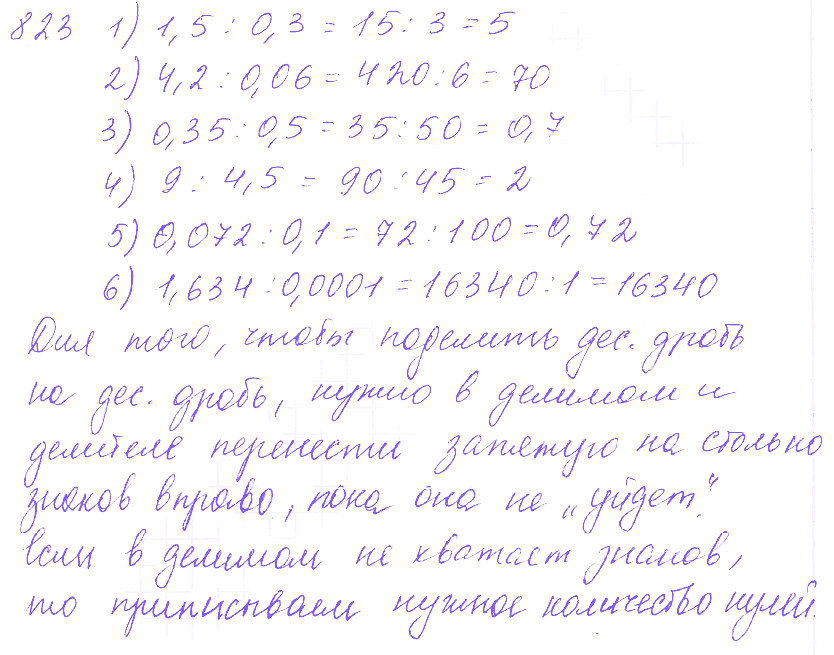 823 1) 1,5 : 0,3 = 15 : 3 = 5
2) 4,2 : 0,06 = 420 : 6 = 70
3) 0,35 : 0,5 = 35 : 50 = 0,7
4) 9 : 4,5 = 90 : 45 = 2
5) 0,072 : 0,1 = 72 : 100 = 0,72
6) 1,634 : 0,0001 = 16340 : 1 = 16340
Для того, чтобы поделить дес. дробь
на дес. дробь, нужно в делимом и
делителе перенести запятую на столько
знаков вправо, пока она не „уйдет".
Если в делимом не хватает знаков,
то приписываем нужное количество нулей.